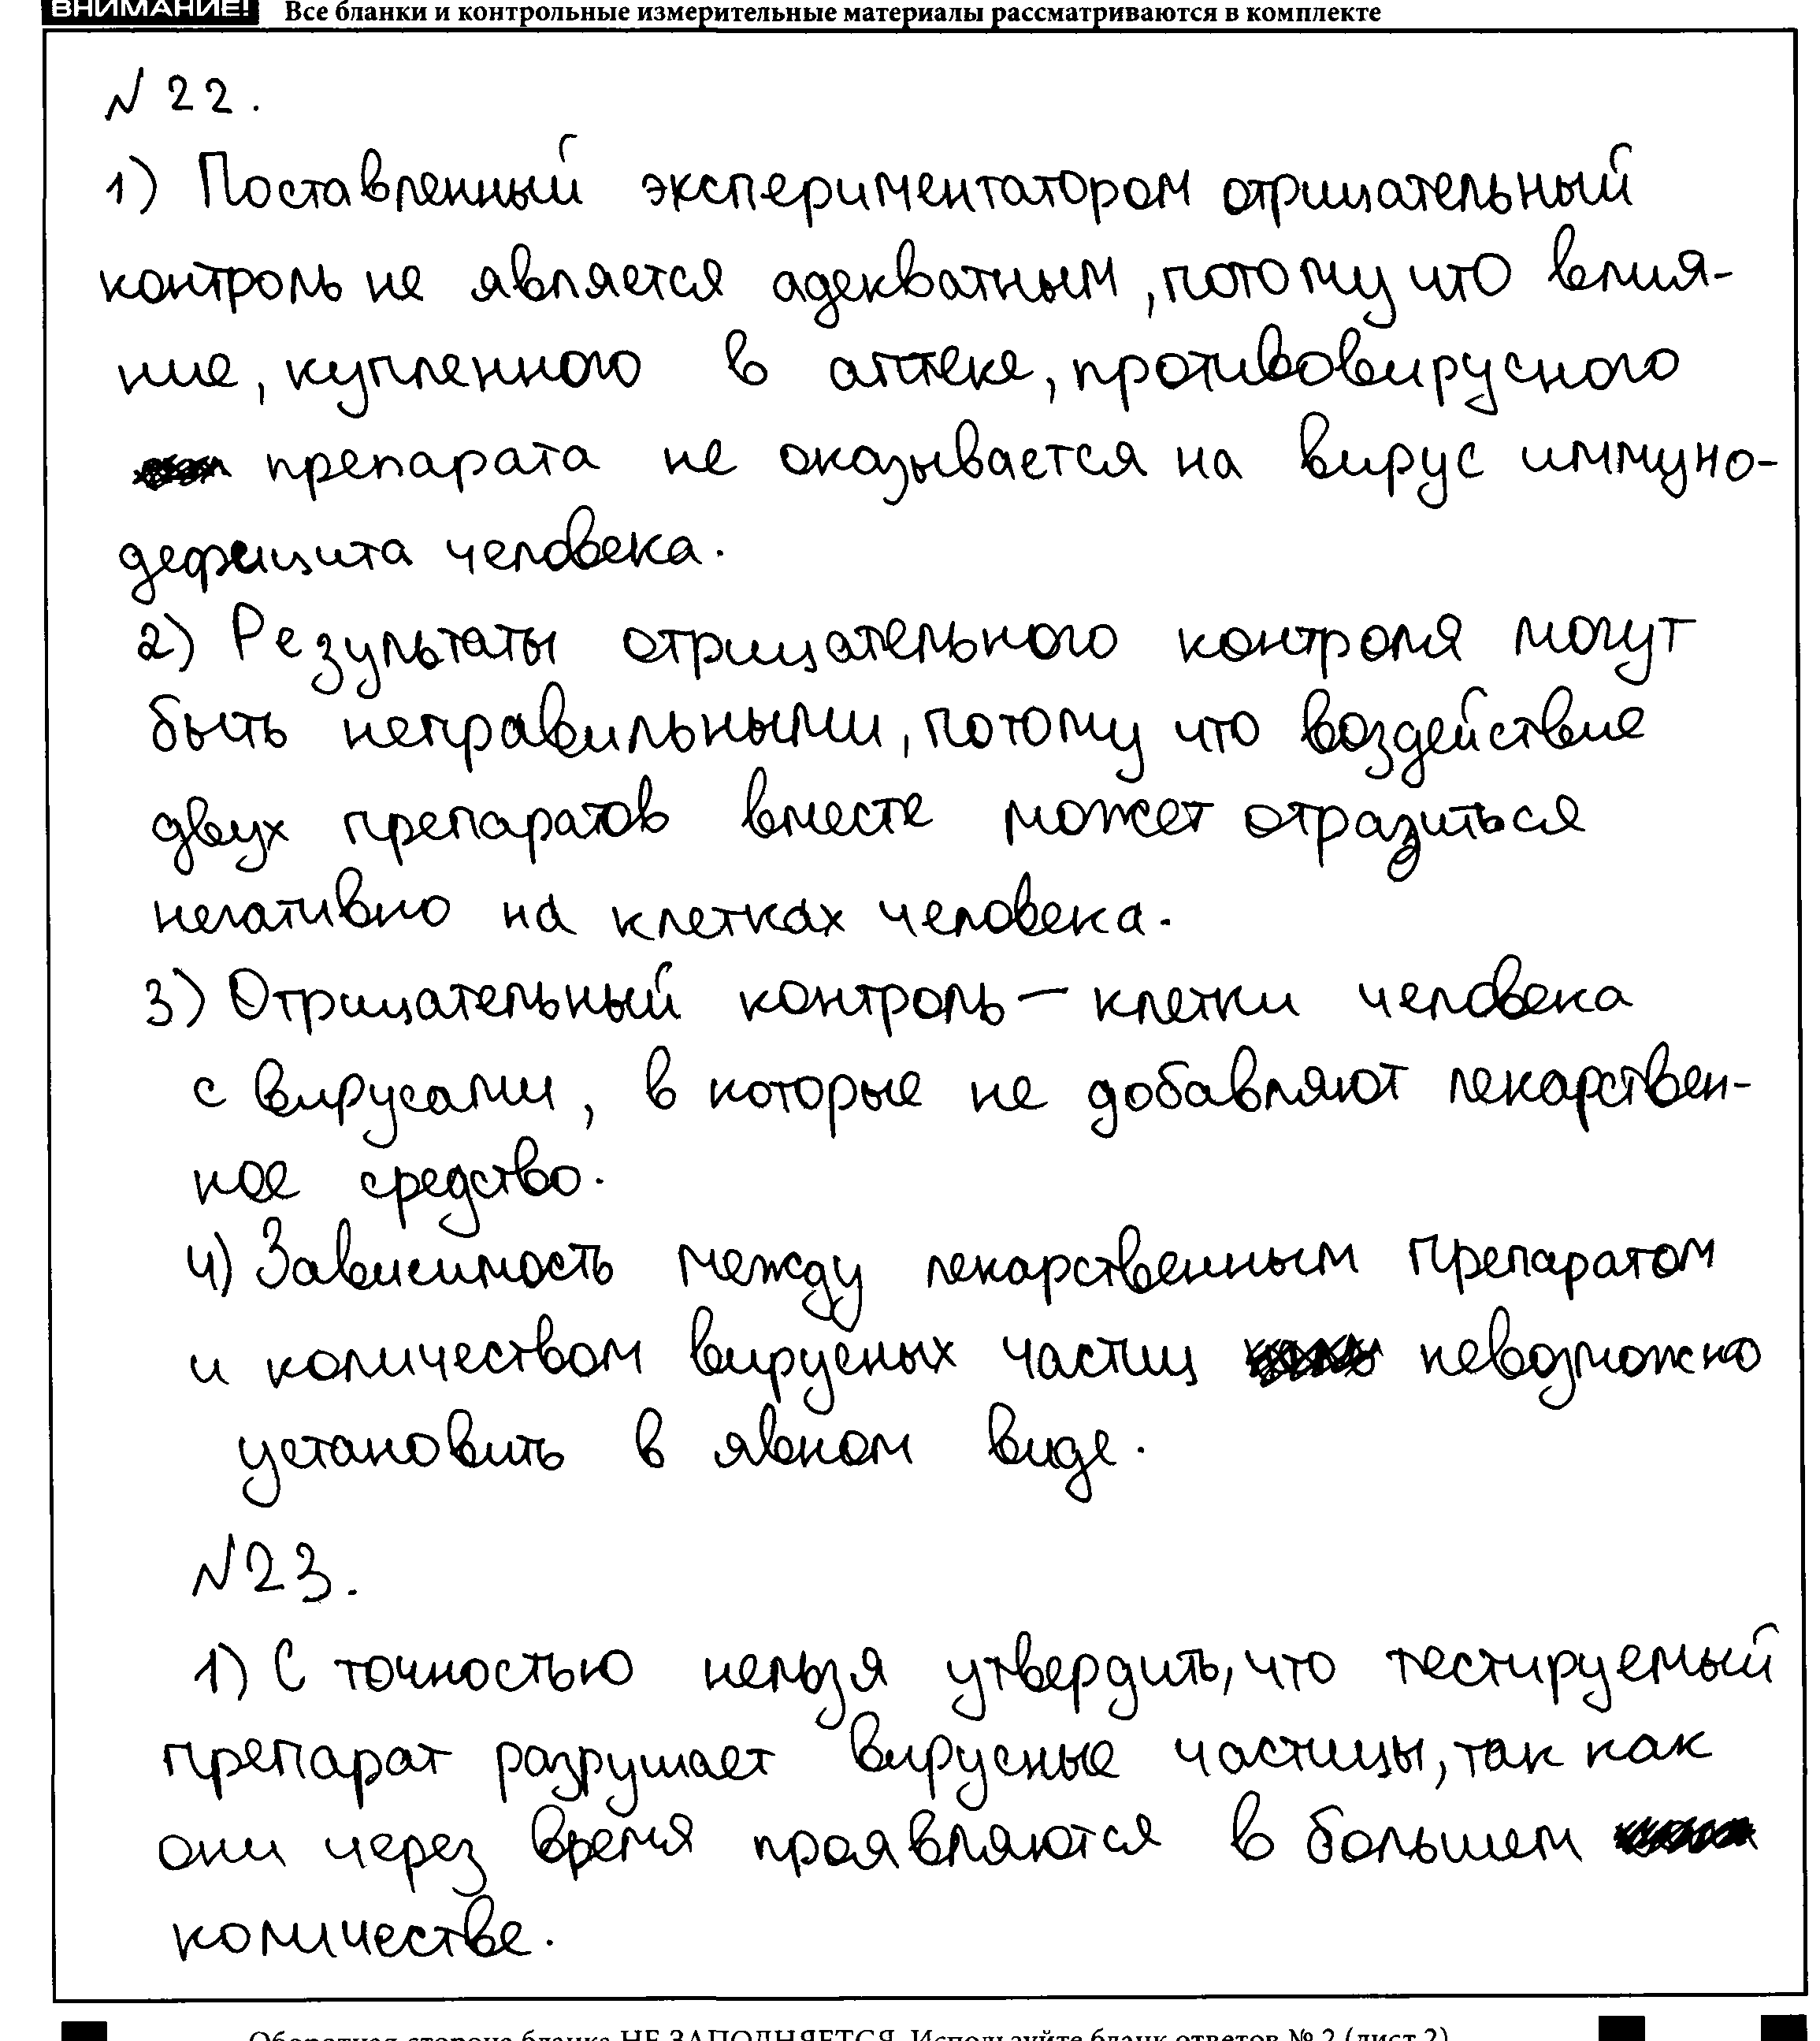 ВНИМАНИЕ! Все бланки и контрольные измерительные материалы рассматриваются в комплекте
№ 22.
1) Поставленный экспериментатором отрицательный
контроль не является адекватным, потому что влия-
ние, купленного в аптеке, противовирусного
препарата не оказывается на вирус иммуно-
дефицита человека.
2) Результаты отрицательного контроля могут
быть неправильными, потому что воздействие
двух препаратов вместе может отразиться
негативно на клетках человека.
3) Отрицательный контроль – клетки человека
с вирусами, в которые не добавляют лекарствен-
ное средство.
4) Зависимость между лекарственным препаратом
и количеством вирусных частиц невозможно
установить в явном виде.
№23.
1) С точностью нельзя утвердить, что тестируемый
препарат разрушает вирусные частицы, так как
они через время проявляются в большем
количестве.
Оборотная сторона бланка НЕ ЗАПОЛНЯЕТСЯ. Используйте бланк ответов № 2 (лист 2)